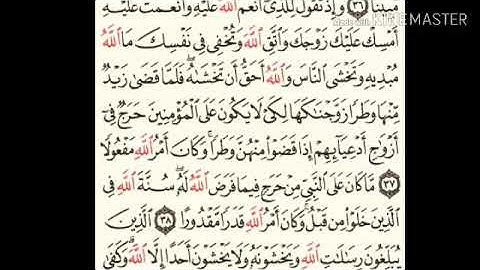 مُّبِينًا ٣٦ وَإِذْ تَقُولُ لِلَّذِىٓ أَنْعَمَ ٱللَّهُ عَلَيْهِ وَأَنْعَمْتَ عَلَيْهِ
أَمْسِكْ عَلَيْكَ زَوْجَكَ وَٱتَّقِ ٱللَّهَ وَتُخْفِى فِى نَفْسِكَ مَا ٱللَّهُ
مُبْدِيهِ وَتَخْشَى ٱلنَّاسَ وَٱللَّهُ أَحَقُّ أَن تَخْشَىٰهُ ۖ فَلَمَّا قَضَىٰ زَيْدٌ
مِّنْهَا وَطَرًا زَوَّجْنَٰكَهَا لِكَىْ لَا يَكُونَ عَلَى ٱلْمُؤْمِنِينَ حَرَجٌ فِىٓ
أَزْوَٰجِ أَدْعِيَآئِهِمْ إِذَا قَضَوْا۟ مِنْهُنَّ وَطَرًا ۚ وَكَانَ أَمْرُ ٱللَّهِ مَفْعُولًا
٣٧ مَّا كَانَ عَلَى ٱلنَّبِىِّ مِنْ حَرَجٍ فِيمَا فَرَضَ ٱللَّهُ لَهُۥ ۖ سُنَّةَ ٱللَّهِ فِى
ٱلَّذِينَ خَلَوْا۟ مِن قَبْلُ ۚ وَكَانَ أَمْرُ ٱللَّهِ قَدَرًا مَّقْدُورًا ٣٨ ٱلَّذِينَ
يُبَلِّغُونَ رِسَٰلَٰتِ ٱللَّهِ وَيَخْشَوْنَهُۥ وَلَا يَخْشَوْنَ أَحَدًا إِلَّا ٱللَّهَ ۗ وَكَفَىٰ
Made with KINEMASTER